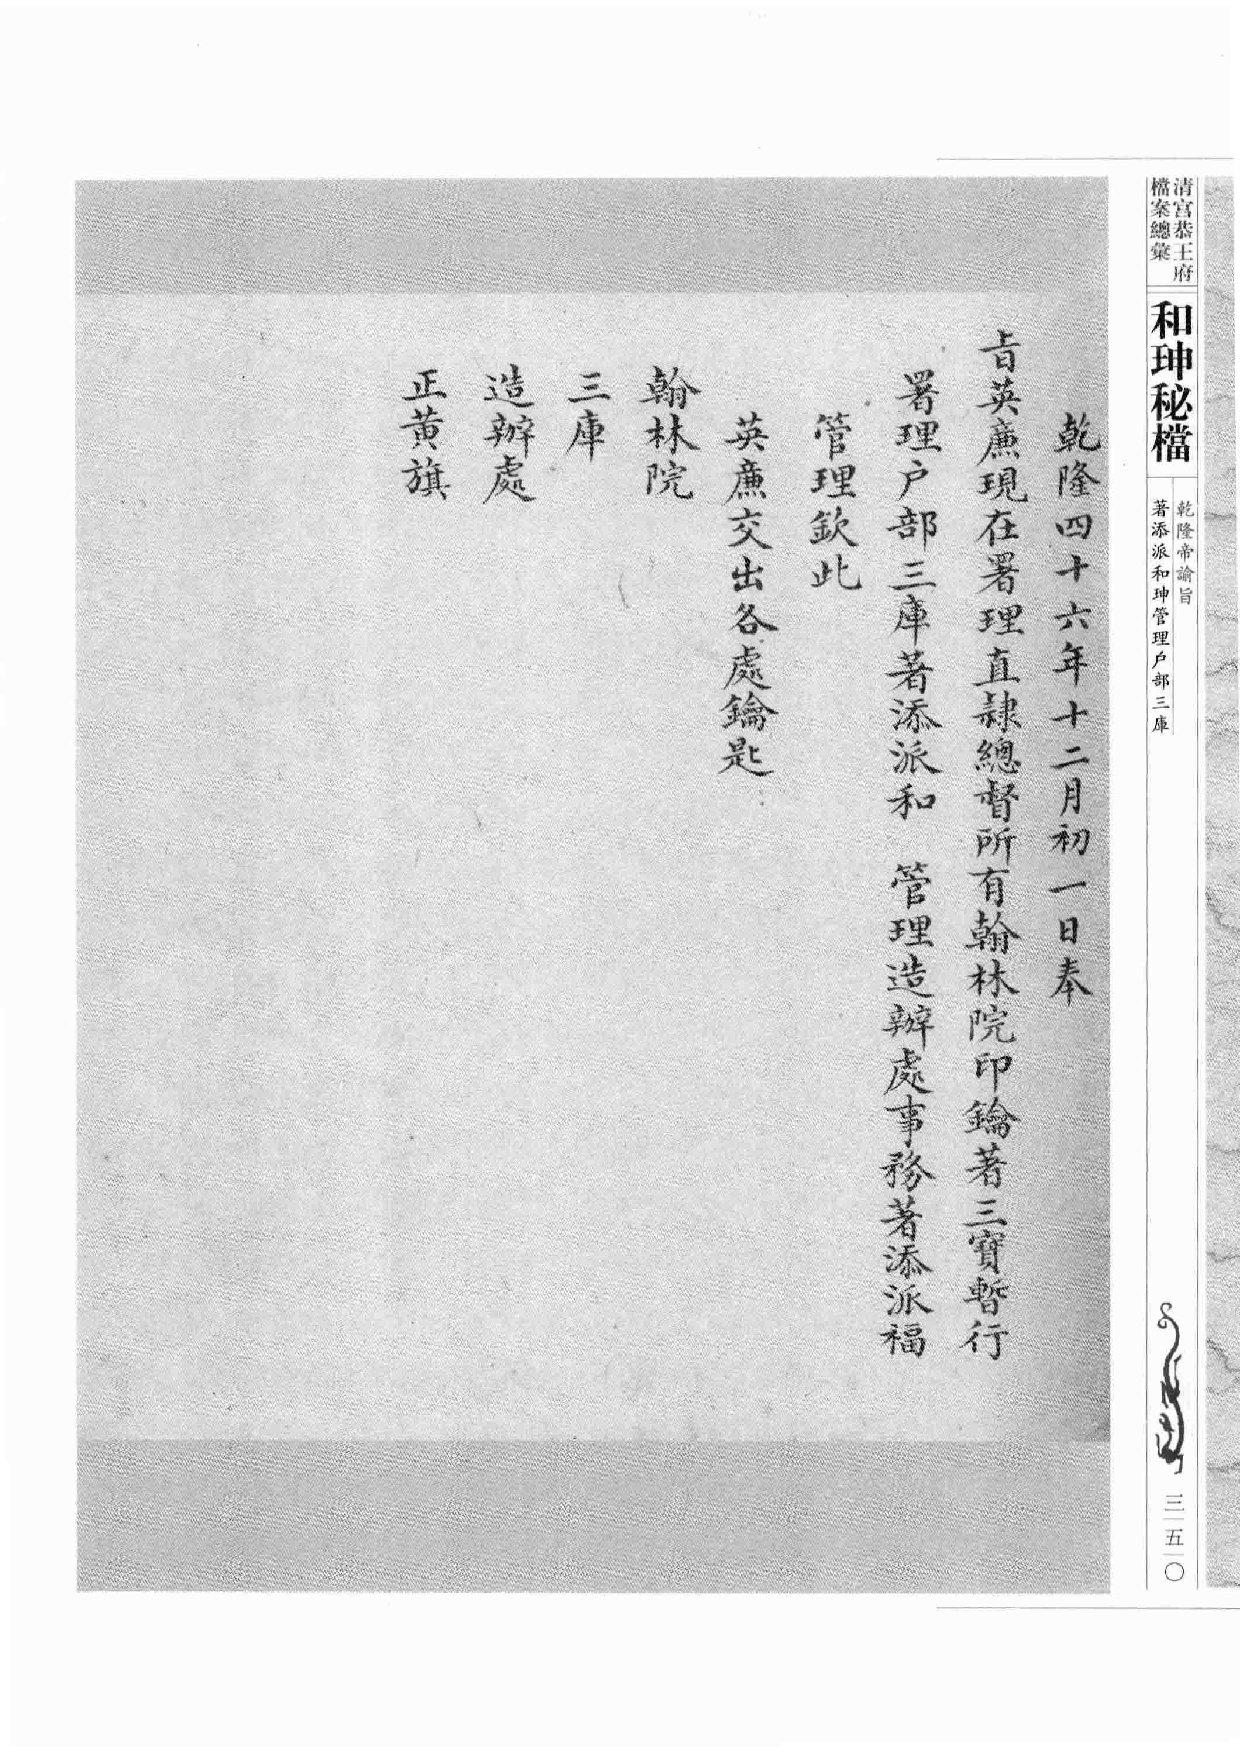 清宮恭王府
檔案總彙
和珅秘檔
乾隆帝諭旨
著添派和珅管理户部三庫
三五〇
乾隆四十六年十二月初一日奉
旨英廉現在署理直隸總督所有翰林院印鑰著三寶暫行
署理户部三庫著添派和 管理造辦處事務著添派福
管理欽此
英廉交出各處鑰匙
翰林院
三庫
造辦處
正黄旗